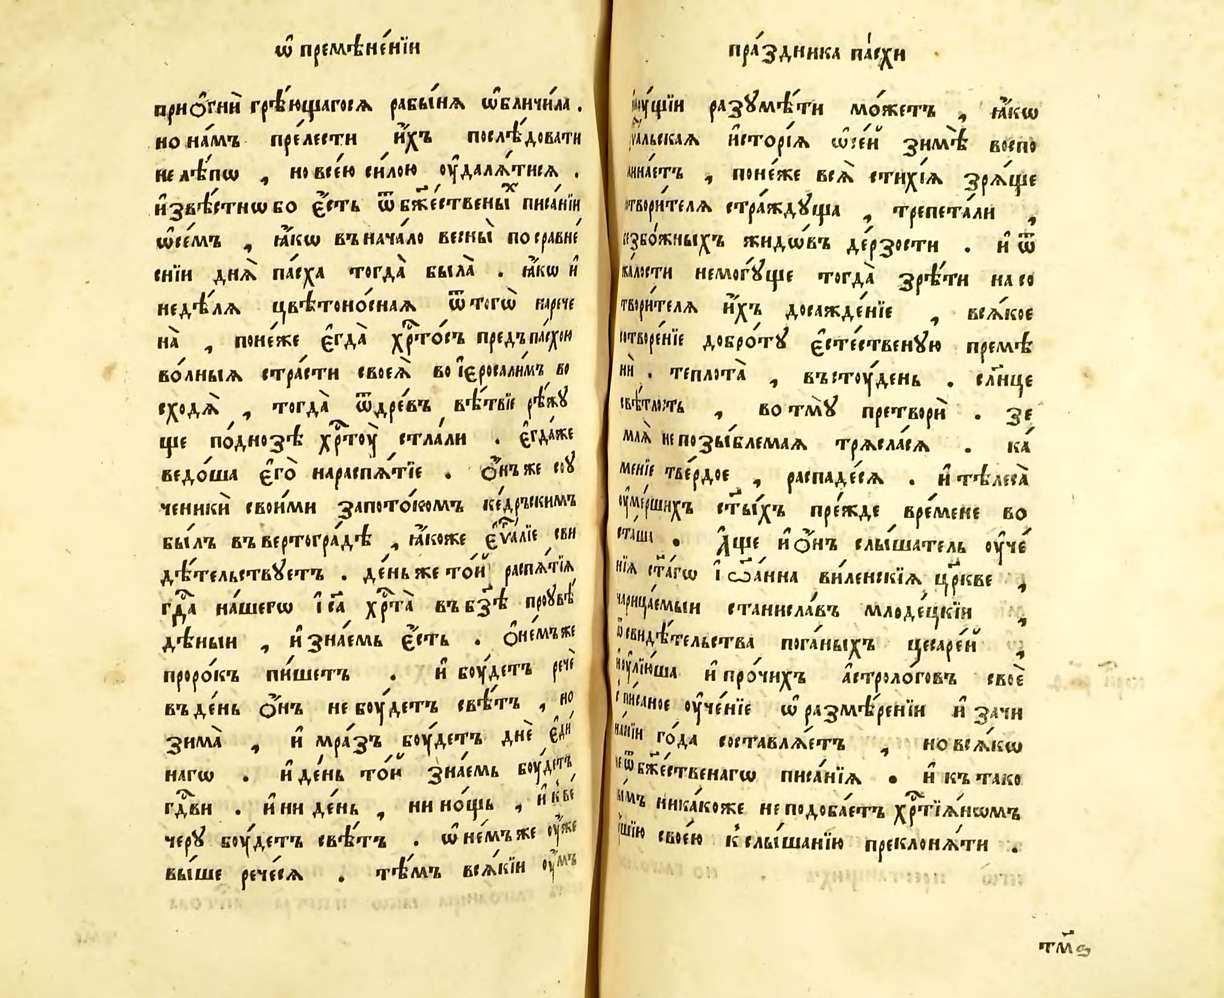 ѡ҆ премѣне́нїи
при ѻ҆гнѝ грѣ́ющагосѧ рабы́нѧ ѡ҆бличи́ла .
но на́мъ пре́лести и҆́хъ послѣ́довати
не лѣ́пѡ , но все́ю си́лою ѹ҆далѧ́тисѧ .
и҆звѣ́стнѡ бо є҆́сть ѿ бж҃е́ственыхъ писа́нїи
ѡ҆ се́мъ , ꙗ҆́кѡ въ нача́ло весны̀ по сравне́
снїи днѧ̀ па́сха тогда̀ была̀ . ꙗ҆́кѡ и҆
недѣ́лѧ цвѣтоно́снаѧ ѿ тогѡ̀ нарече
на̀ , поне́же є҆гда̀ хрⷭ҇то́съ предъ па́схою
во́лныѧ стра́сти своеѧ̀ во і҆ероⷭ҇али́мъ во
сходѧ̀ , тогда̀ ѿ дре́въ вѣ́твїе рѣ́жꙋ
ще по́днозѣ хрⷭ҇тѹ̀ стла́ли . є҆гда́же
ведо́ша є҆го̀ на распѧ́тїе . ѻ҆́нъ же со ѹ
ченикѝ свои́ми за пото́комъ ке́дрьскимъ
бы́лъ въ вертогра́дѣ , ꙗ҆́коже є҆ѵⷢ҇а́лїе сви
дѣ́тельствꙋетъ . де́нь же то́й распѧ́тїѧ
гдⷭ҇а на́шегѡ і҆и҃са хрⷭ҇та̀ въ бз҃ѣ проувѣ́
дѣныи , и҆ зна́емь є҆́сть . ѻ҆ не́мъ же
проро́къ пи́шетъ . и҆ бѹ́детъ речѐ
въ де́нь ѻ҆́нъ не бѹ́детъ свѣ́тъ , но
зима̀ , и҆ мра́зъ бѹ́детъ днѐ є҆ди́
нагѡ . и҆ де́нь то́й зна́емь бѹ́детъ
гдⷭ҇ви . и҆ ни де́нь , ни но́щь , и҆ к ве́
черꙋ бѹ́детъ свѣ́тъ . ѡ҆ не́мъ же ѹ҆́же
вы́ше рече́сѧ . тѣ́мъ всѧ́кїи ѹ҆́мъ
пра́здника па́схи
разꙋмѣ́ти мо́жетъ , ꙗ҆́кѡ
и҆сторі́ѧ ѡ҆ се́й зимѣ̀ воспо
мина́етъ , поне́же всѧ̀ стихі́ѧ зрѧ́ще
творі́телѧ стра́ждꙋща , трепета́ли ,
безбо́жныхъ жидѡ́въ де́рзости . и҆ ѿ
жа́лости немогꙋ́ще тогда̀ зрѣ́ти на со
твори́телѧ и҆́хъ досажде́нїе , всѧ́кое
сотворе́нїе добро́тꙋ є҆сте́ственꙋю премѣ
нѝ . теплота̀ , въ стѹ́день . сл҃нце
свѣ́тлость , во тмꙋ̀ претворѝ . зе
млѧ̀ непозы́блемаѧ трѧсла́сѧ . ка́
менїе тве́рдое , распаде́сѧ . и҆ тѣлеса̀
ѹ҆ме́ршихъ ст҃ы́хъ пре́жде вре́мене во
ста́ша . А҆́ще и҆ ѻ҆́нъ слы́шатель ѹ҆че́
нїѧ ст҃а́гѡ і҆ѡа́нна ви́ленскїѧ цр҃кве ,
нарица́емыи станисла́въ младе́цкїи ,
ѿ свидѣ́тельства пога́ныхъ цесаре́й ,
и҆ѹ́лїюша и҆ про́чихъ а҆строло́говъ своѐ
писаное ѹ҆че́нїе ѡ҆ размѣ́ренїи и҆ зачи
на́нїи го́да составлѧ́етъ , но всѧ́кѡ
не ѿ бж҃е́ственагѡ писа́нїѧ . и҆ къ тако
вы́мъ ника́коже не подоба́етъ хрⷭ҇тїѧ́нѡмъ
свое́ю к слы́шанїю преклонѧ́ти .
тм҃ѕ